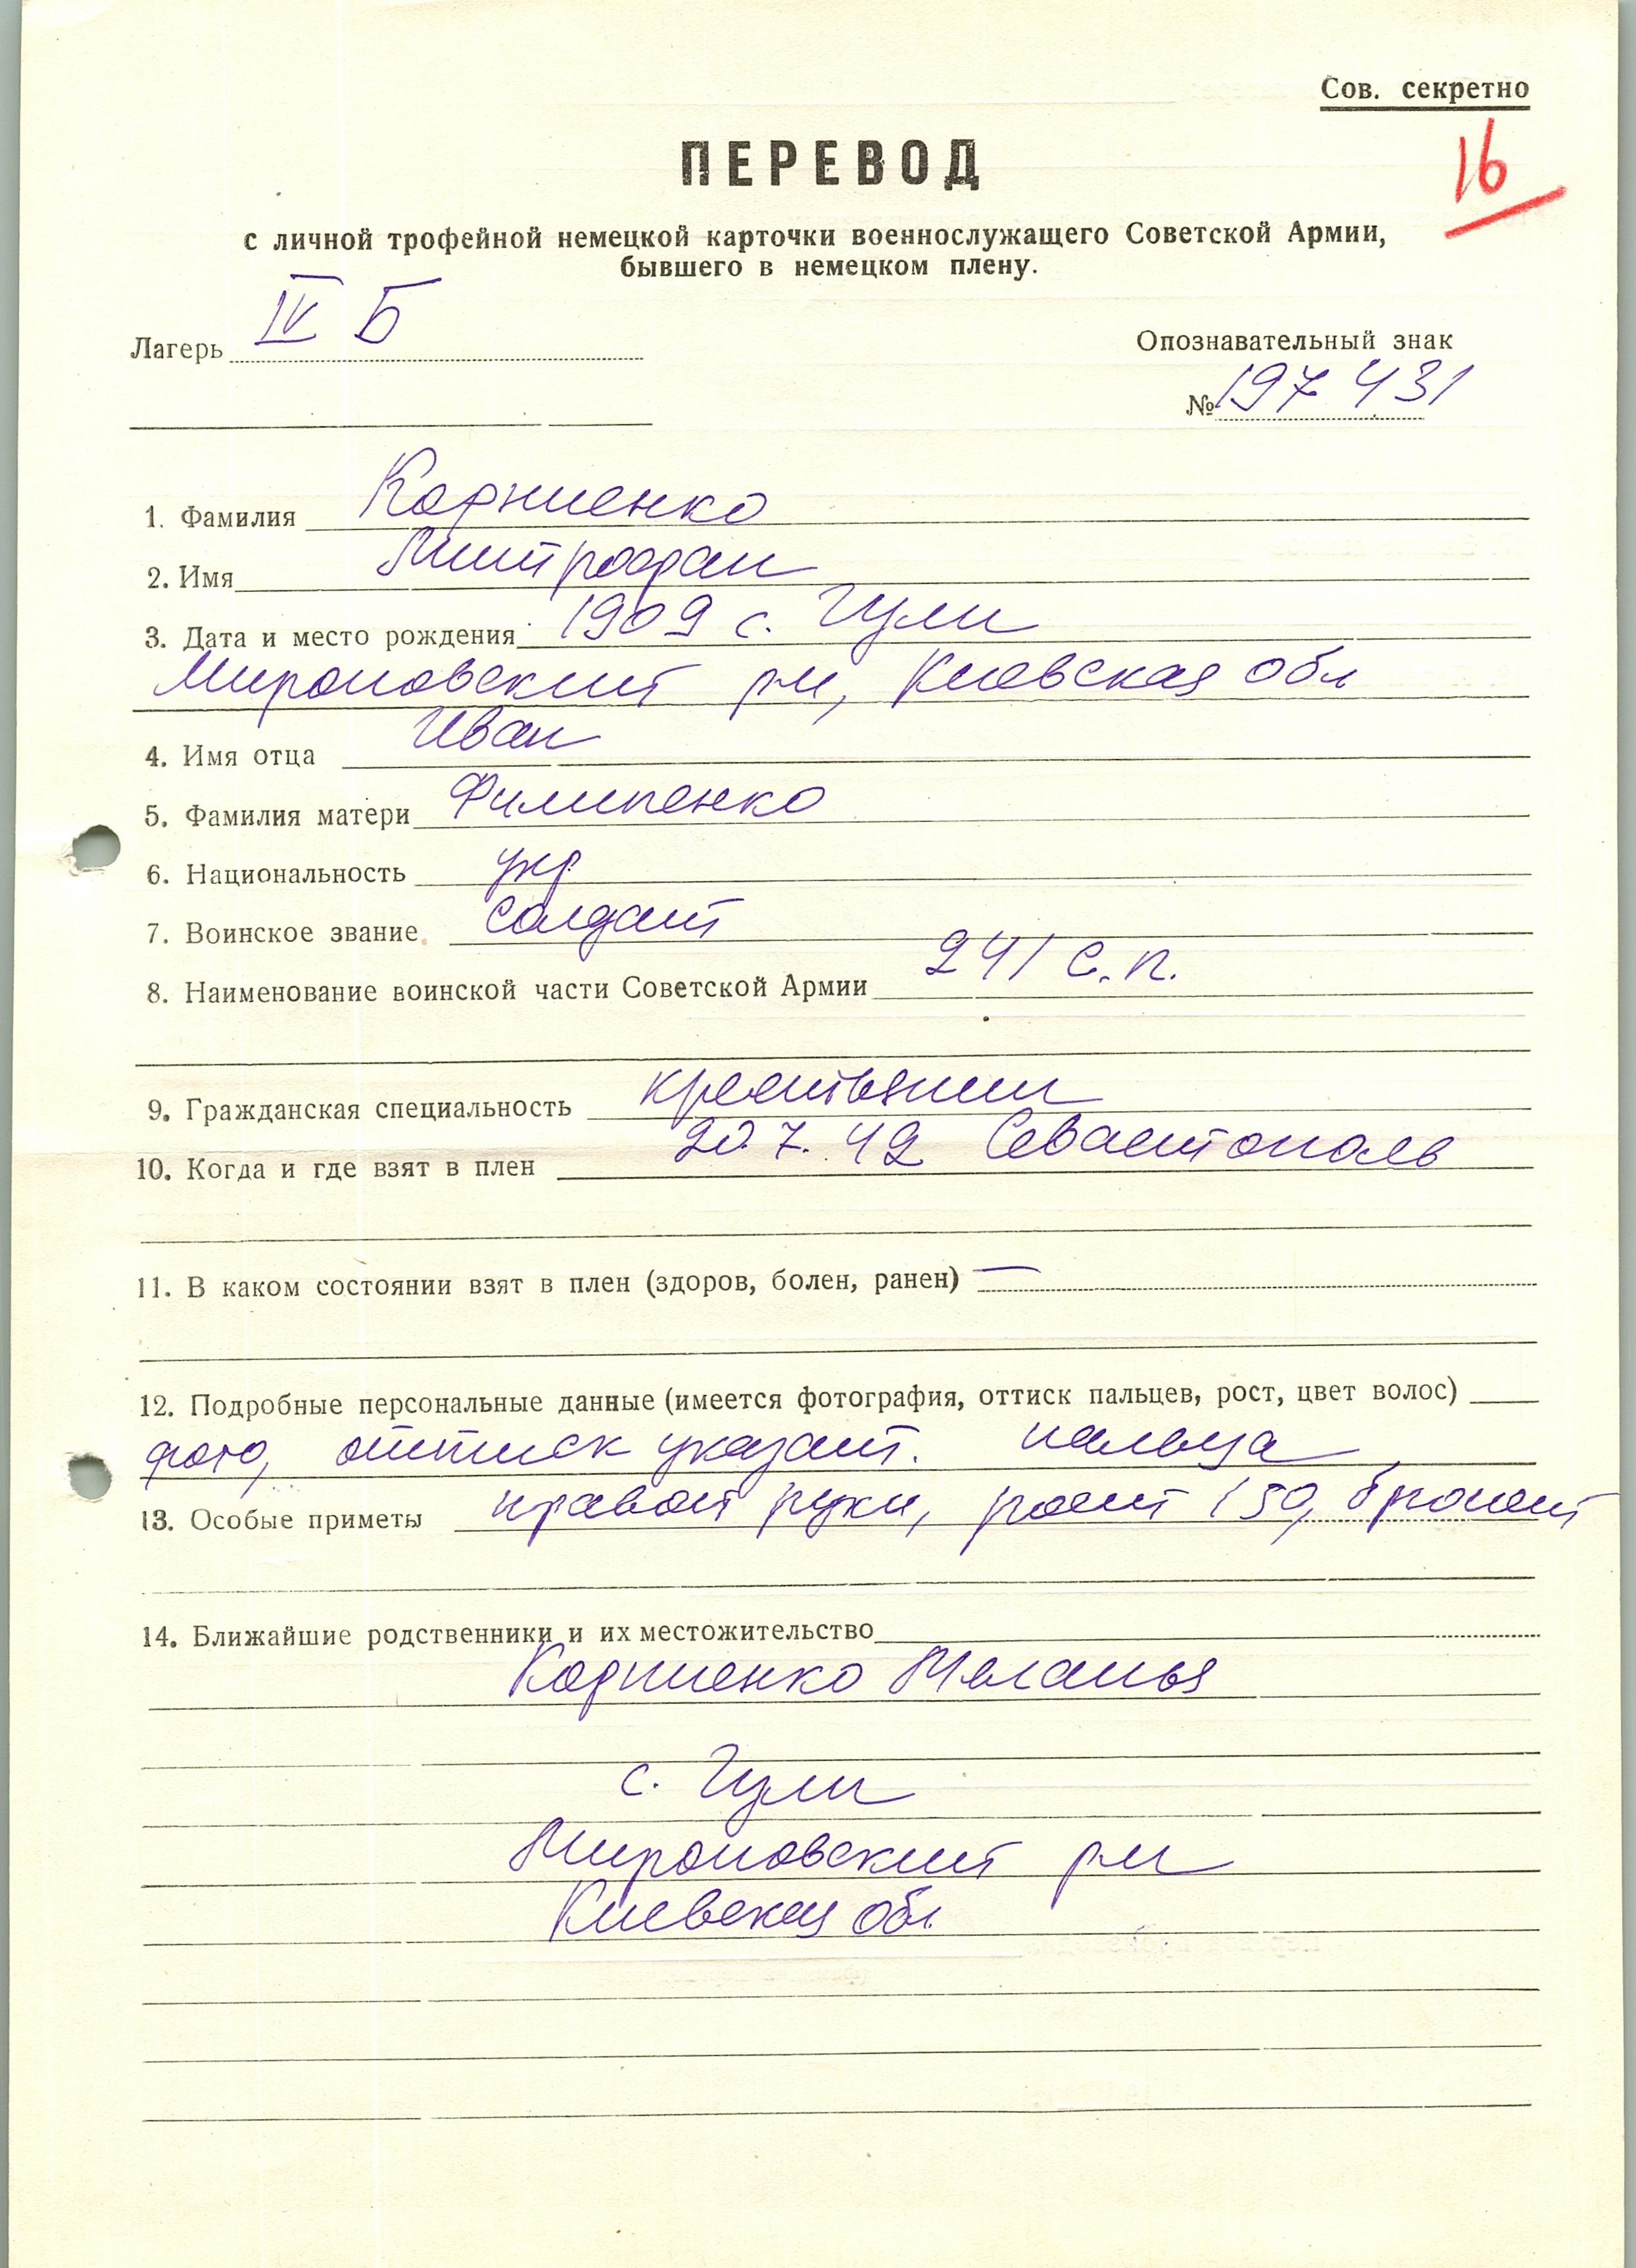 Сов. секретно
16
ПЕРЕВОД
с личной трофейной немецкой карточки военнослужащего Советской Армии,
бывшего в немецком плену.
Лагерь IV Б
Опознавательный знак
№ 197431
1. Фамилия Корниенко
2. Имя Митрофан
3. Дата и место рождения 1909 с. Гули
Мироновский р-н, Киевская обл
4. Имя отца Иван
5. Фамилия матери Филипенко
6. Национальность укр
7. Воинское звание солдат
8. Наименование воинской части Советской Армии 241 с.п.
9. Гражданская специальность крестьянин
10. Когда и где взят в плен 20.7.42 Севастополь
11. В каком состоянии взят в плен (здоров, болен, ранен) —
12. Подробные персональные данные (имеется фотография, оттиск пальцев, рост, цвет волос)
фото, оттиск указат. пальца
13. Особые приметы правой руки, рост 150, брюнет
14. Ближайшие родственники и их местожительство
Корниенко Меланья
с. Гули
Мироновский р-н
Киевская обл.